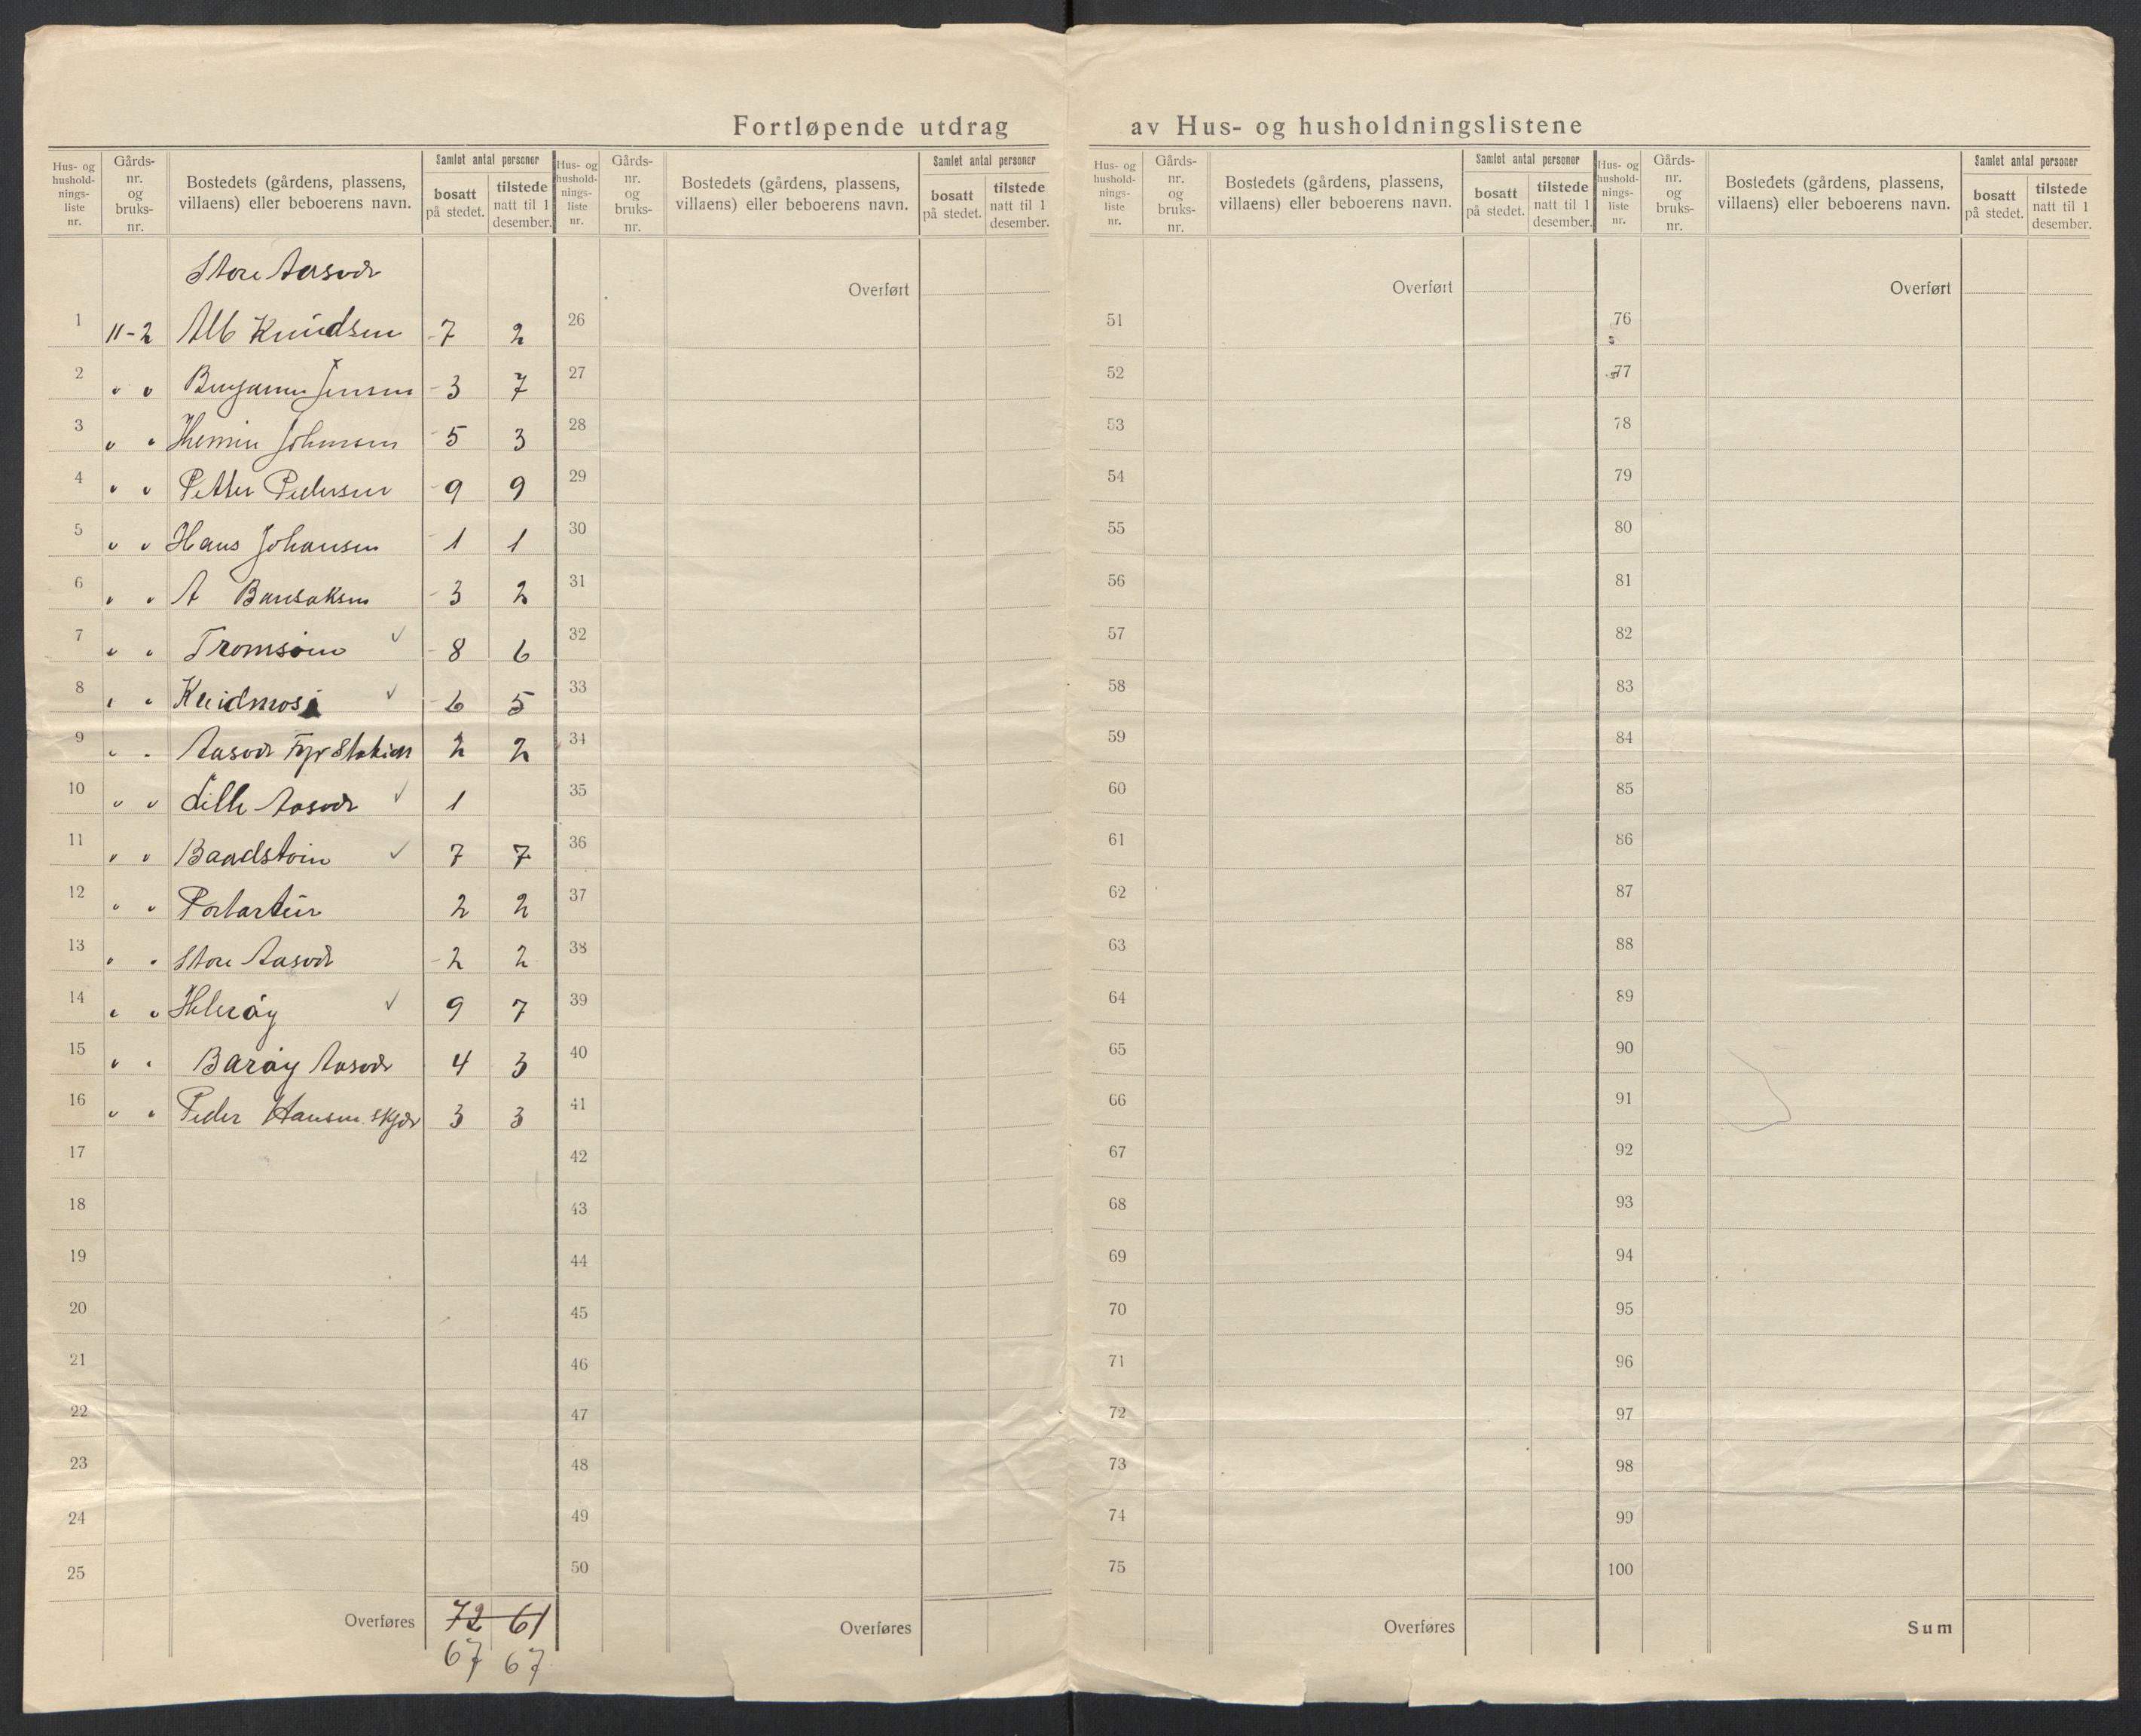 Fortløpende utdrag av Hus- og husholdningslistene
Hus- og hushold-nings-liste nr. Gårds-nr. og bruks-nr. Bostedets (gårdens, plassens, villaens) eller beboerens navn. Samlet antal personer bosatt på stedet. tilstede natt til 1 desember.
Hus- og hushold-nings-liste nr. Gårds-nr. og bruks-nr. Bostedets (gårdens, plassens, villaens) eller beboerens navn. Samlet antal personer bosatt på stedet. tilstede natt til 1 desember.
Hus- og hushold-nings-liste nr. Gårds-nr. og bruks-nr. Bostedets (gårdens, plassens, villaens) eller beboerens navn. Samlet antal personer bosatt på stedet. tilstede natt til 1 desember.
Hus- og hushold-nings-liste nr. Gårds-nr. og bruks-nr. Bostedets (gårdens, plassens, villaens) eller beboerens navn. Samlet antal personer bosatt på stedet. tilstede natt til 1 desember.
Store Aasvær
Overført Overført Overført
1 11-2 Alb Knudsen 7 2 26 51 76
2 " " Benjamin Jensen 3 7 27 52 77
3 " " Johansen 5 3 28 53 78
4 " " Petter Pedersen 9 9 29 54 79
5 " " Hans Johansen 1 1 30 55 80
6 " " A 3 2 31 56 81
7 " " Tromsöin ✓ 8 6 32 57 82
8 " " ✓ 6 5 33 58 83
9 " " Aasvær Fyrstation 2 2 34 59 84
10 " " Lille Aasvær ✓ 1 35 60 85
11 " " Baadstöin ✓ 7 7 36 61 86
12 " " Portartur 2 2 37 62 87
13 " " Store Aasvær 2 2 38 63 88
14 " " Helröy ✓ 9 7 39 64 89
15 " " Baröy Aasvær 4 3 40 65 90
16 " " Peder Hansen Skjær 3 3 41 66 91
17 42 67 92
18 43 68 93
19 44 69 94
20 45 70 95
21 46 71 96
22 47 72 97
23 48 73 98
24 49 74 99
25 50 75 100
Overføres 72 61 Overføres Overføres Sum
67 67